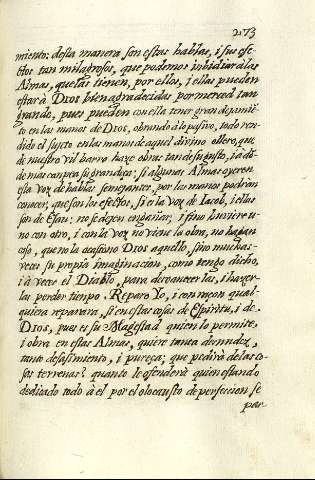 273
miento: desta manera son estas hablas, i sus efe-
ctos tan milagrosos, que podemos inbidiar à las
Almas, que las tienen, por ellas, i ellas pueden
estar à DIOS bien agradecidas por merced tan
grande, pues pueden con ella tener gran dejamiẽ-
to en las manos de DIOS, obrando à lo pasivo, todo ren-
dido el sujeto en las manos de aquel divino ollero, que
de nuestro vil barro haze obras tan de su gusto, i a dõ-
de mas campea su grandeza; si algunas Almas oyeren
esta voz de hablas semejantes, por las manos podràn
conocer, que son los efectos, si es la voz de Iacob, i ellas
son de Esau; no se dejen engañar; i si no huviere u-
no con otro, i con la voz no viene la obra, no hagan
caso, que no la ocasionò DIOS aquello, sino muchas
veces su propia imaginacion, como tengo dicho,
i à veces el Diablo, para desvanecerlas, i hazer-
las perder tiempo. Reparo Yo, i con raçon qual-
quiera reparara, si en estas cosas de Espiritu, i de
DIOS, pues es su Magestad quien lo permite,
i obra en estas Almas, quiere tanta desnudez,
tanto desasimiento, i pureça; que pedirà de las co-
sas terrenas? quanto le ofenderà quien estando
dedicado todo à el por el olocausto de perfecion se
par